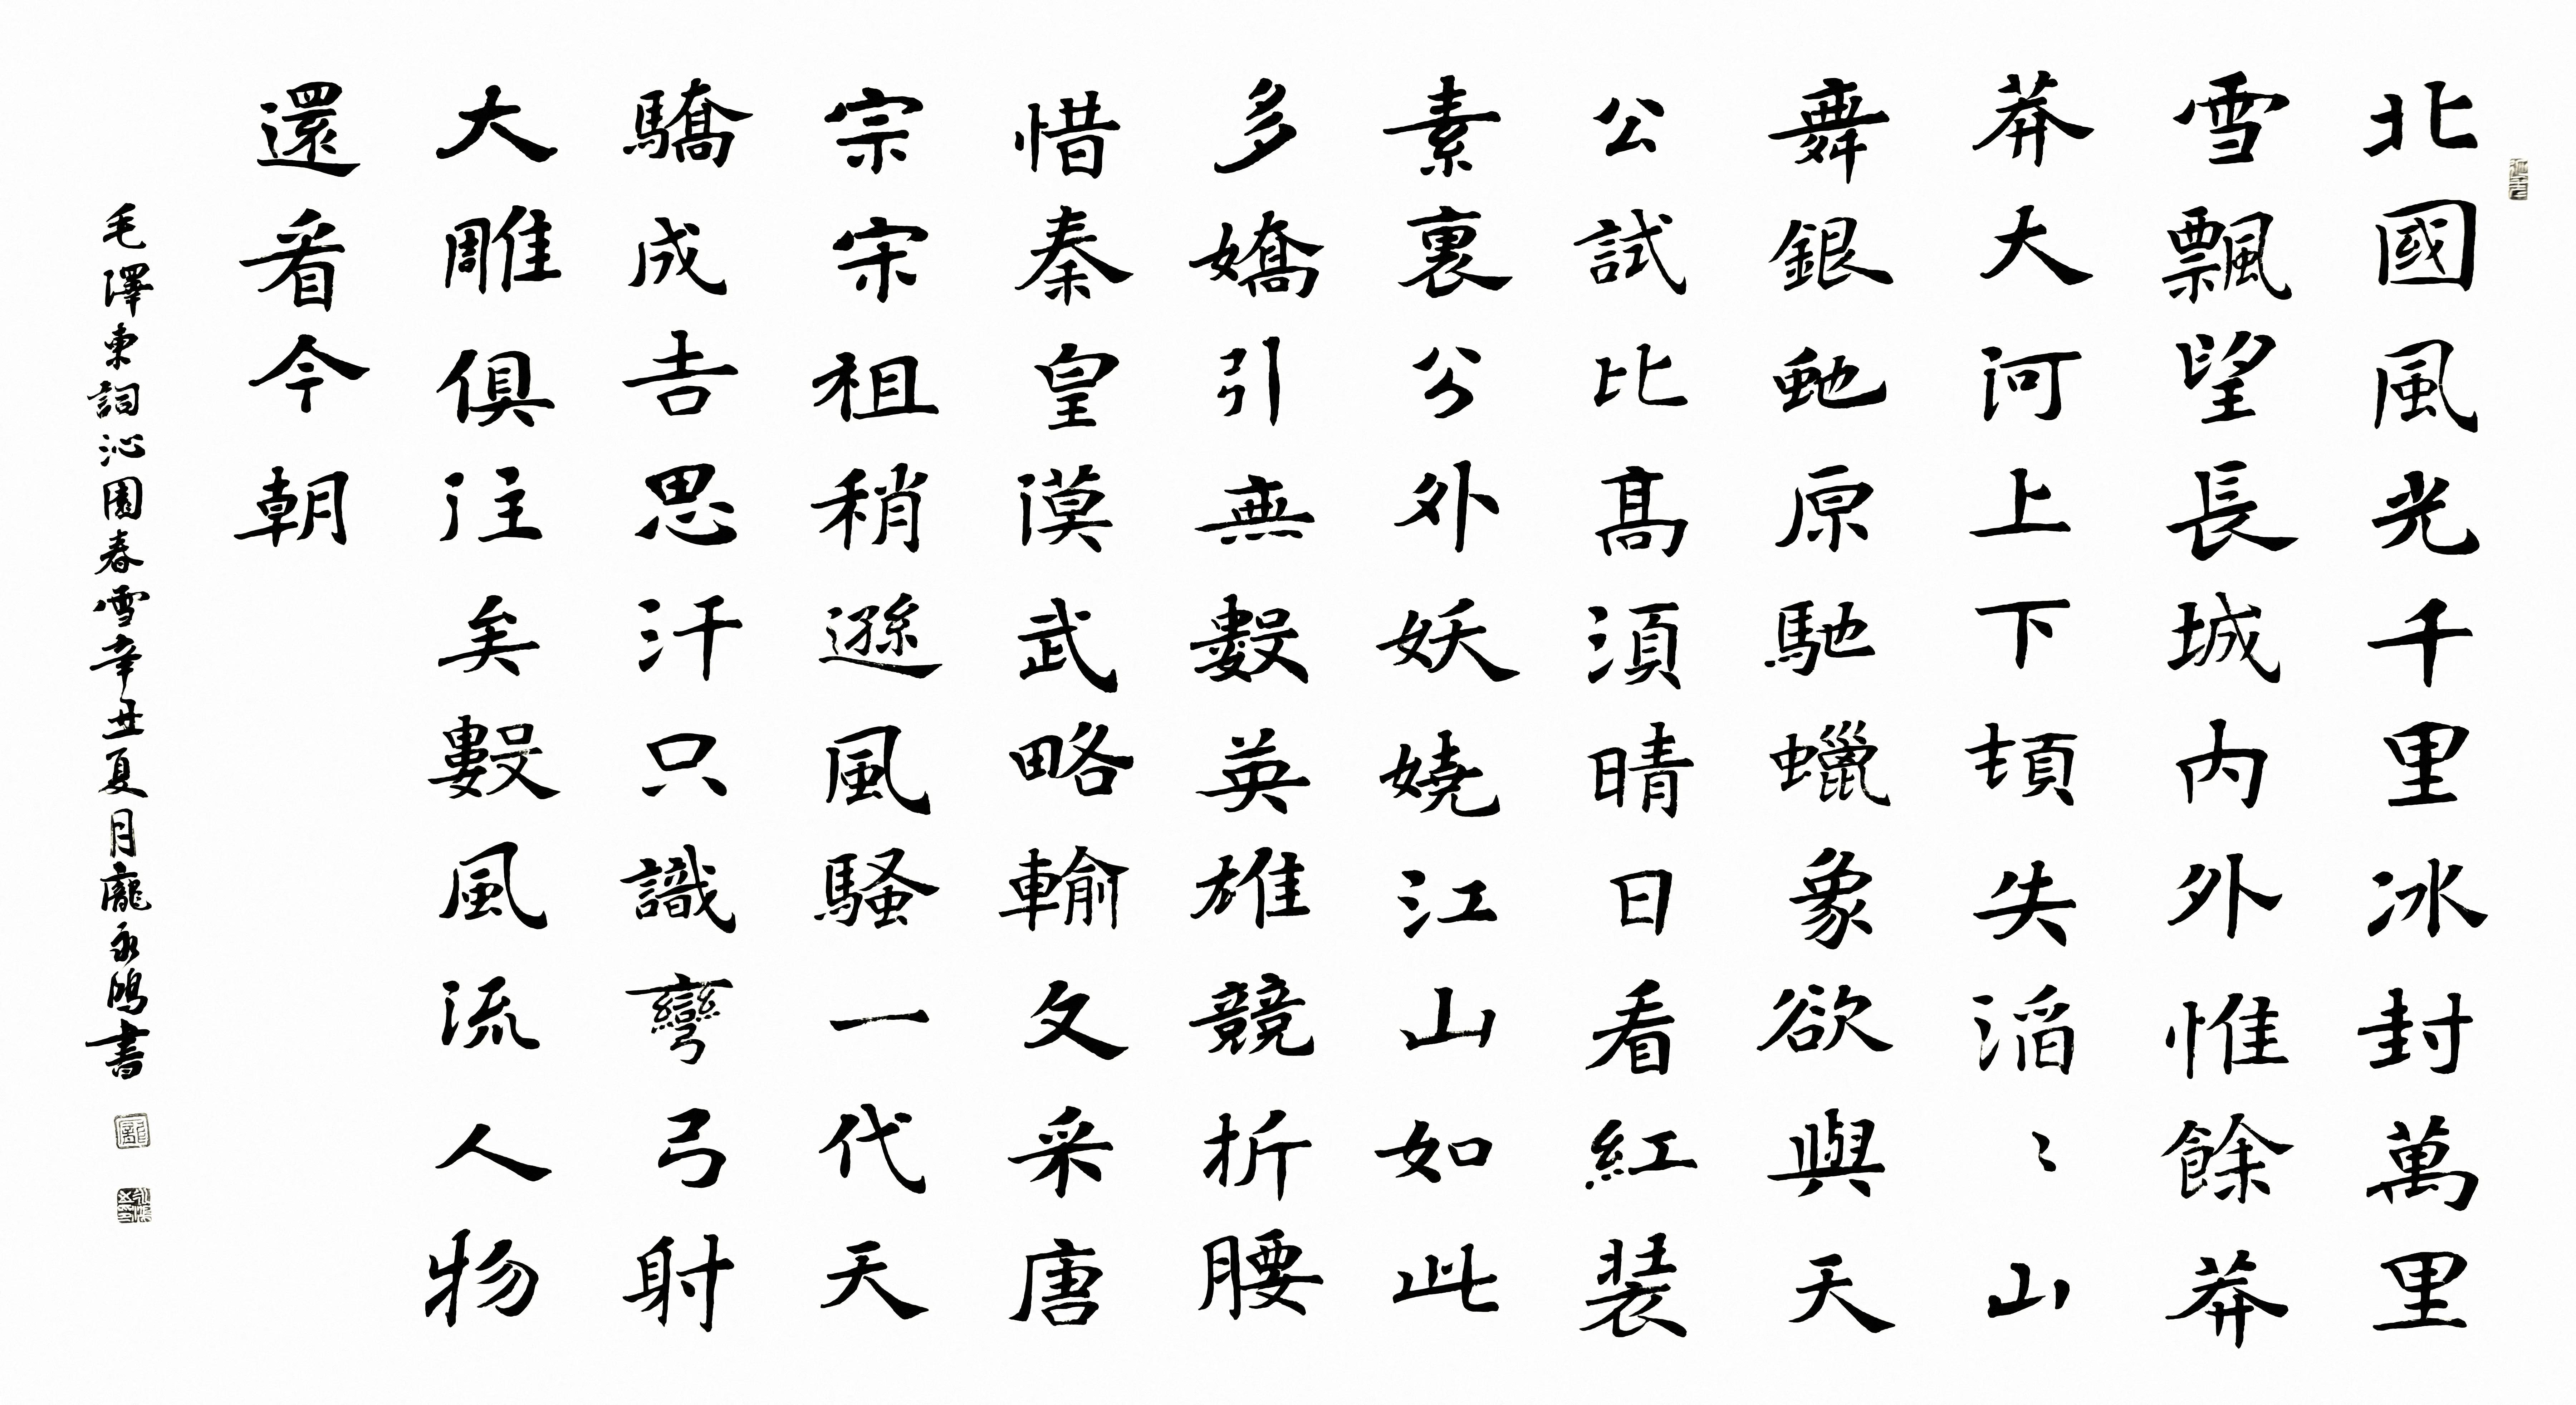 北國風光千里冰封萬里
雪飄望長城内外惟餘莽
莽大河上下頓失滔〻山
舞銀虵原馳蠟象欲與天
公試比髙須晴日看紅装
素裹分外妖嬈江山如此
多嬌引無數英雄競折腰
惜秦皇漢武略輸文采唐
宗宋祖稍遜風騷一代天
驕成吉思汗只識彎弓射
大雕俱往矣數風流人物
還看今朝
毛澤東詞沁園春雪辛丑夏月龐永鴻書